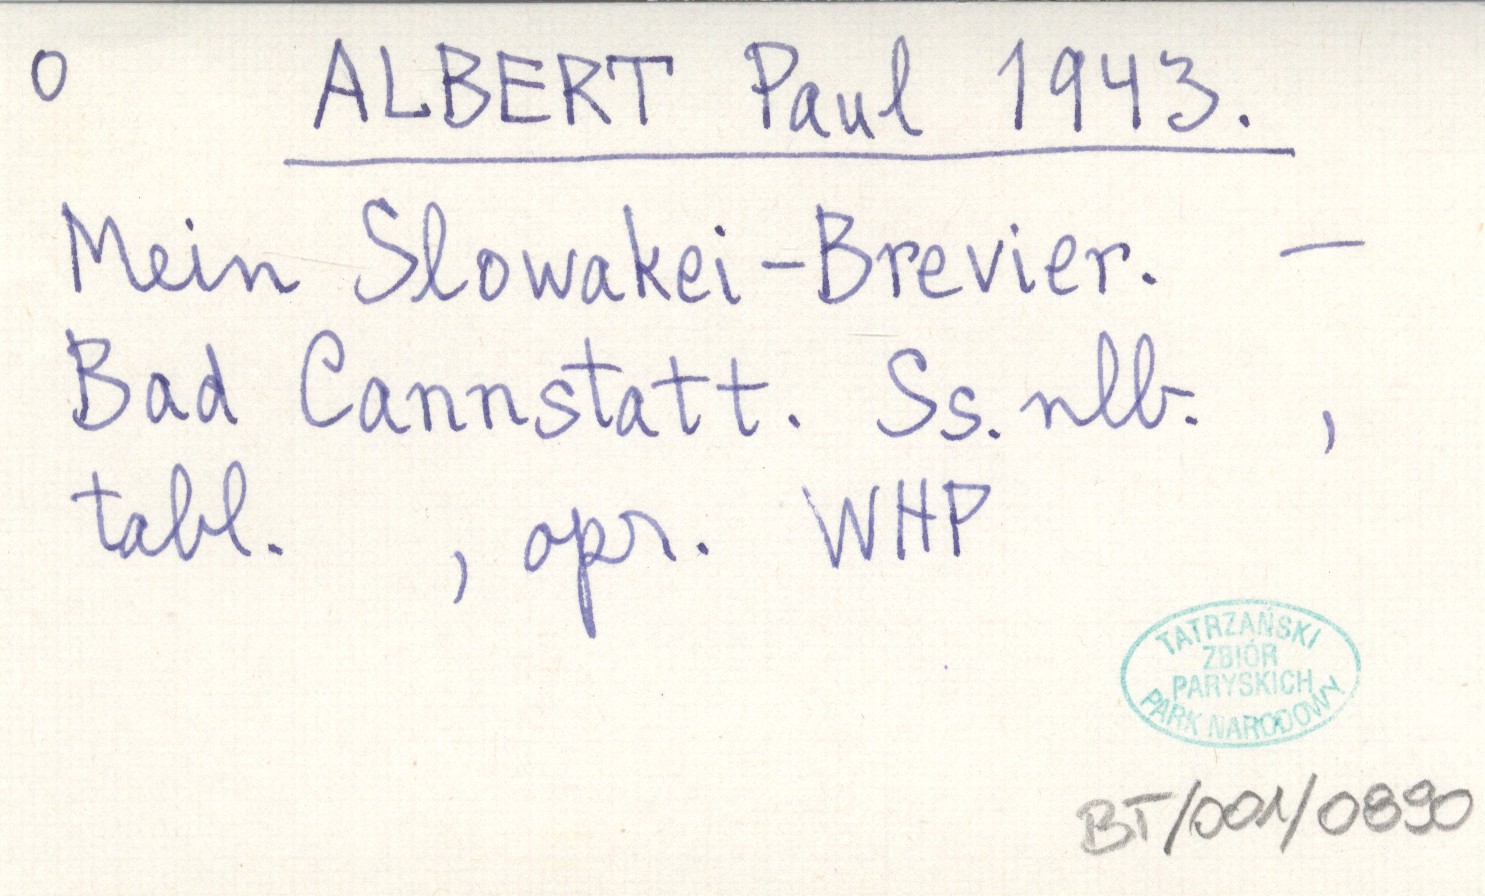 O ALBERT Paul 1943.
Mein Slowakei-Brevier. —
Bad Cannstatt. Ss. nlb. ,
tabl. , opr. WHP
TATRZAŃSKI
ZBIÓR
PARYSKICH
PARK NARODOWY
BT/001/0890